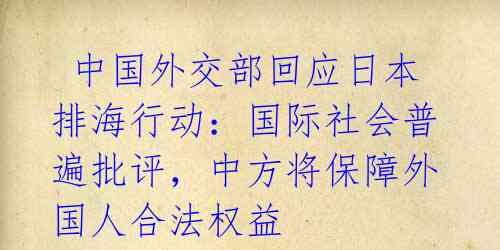 中国外交部回应日本
排海行动：国际社会普
遍批评，中方将保障外
国人合法权益